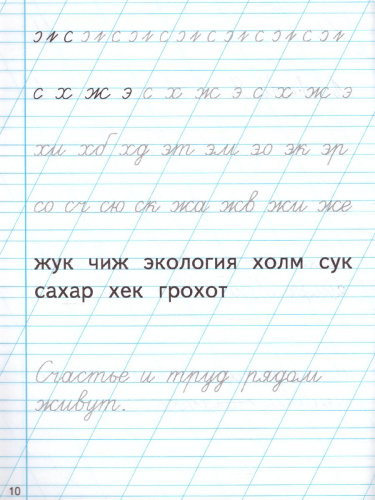 с х ж э с х ж э с х ж э
хи хб хд эт эм эо эк эр
со сч сю ск жа жв жи же
жук чиж экология холм сук
сахар хек грохот
Счастье и труд рядом
живут.
10